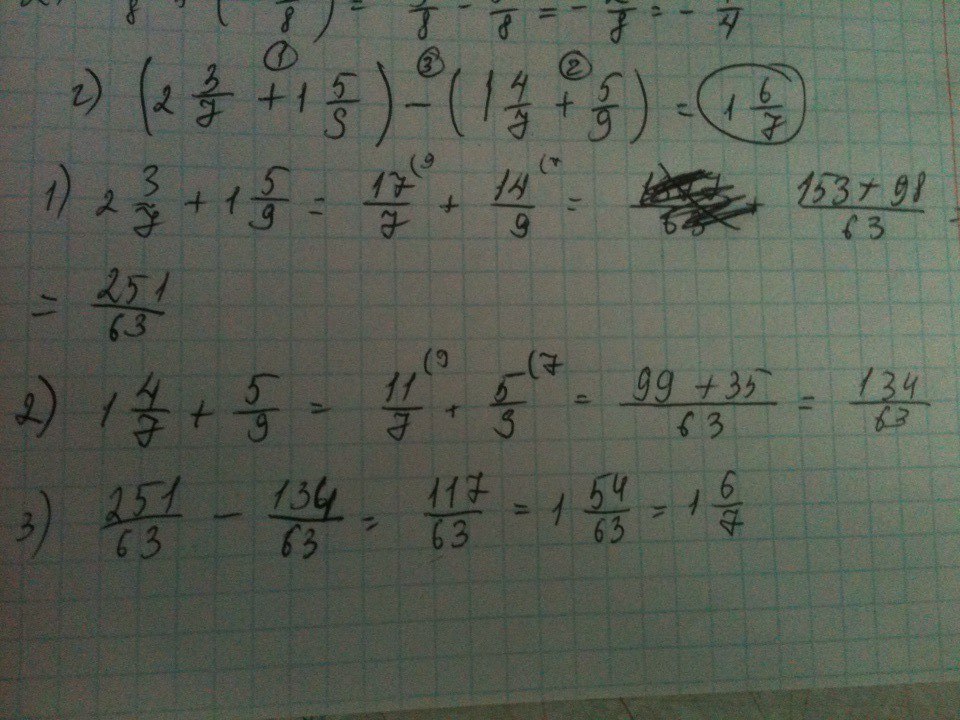 8 8 ) = 8 - 8 = - 8 = - 4
г) (2 3/7 + 1 5/9) - (1 4/7 + 5/9) = 1 6/7
① ③ ②
1) 2 3/7 + 1 5/9 = 17/7 (9 + 14/9 (7 = + (153 + 98)/63 =
= 251/63
2) 1 4/7 + 5/9 = 11/7 (9 + 5/9 (7 = (99 + 35)/63 = 134/63
3) 251/63 - 134/63 = 117/63 = 1 54/63 = 1 6/7